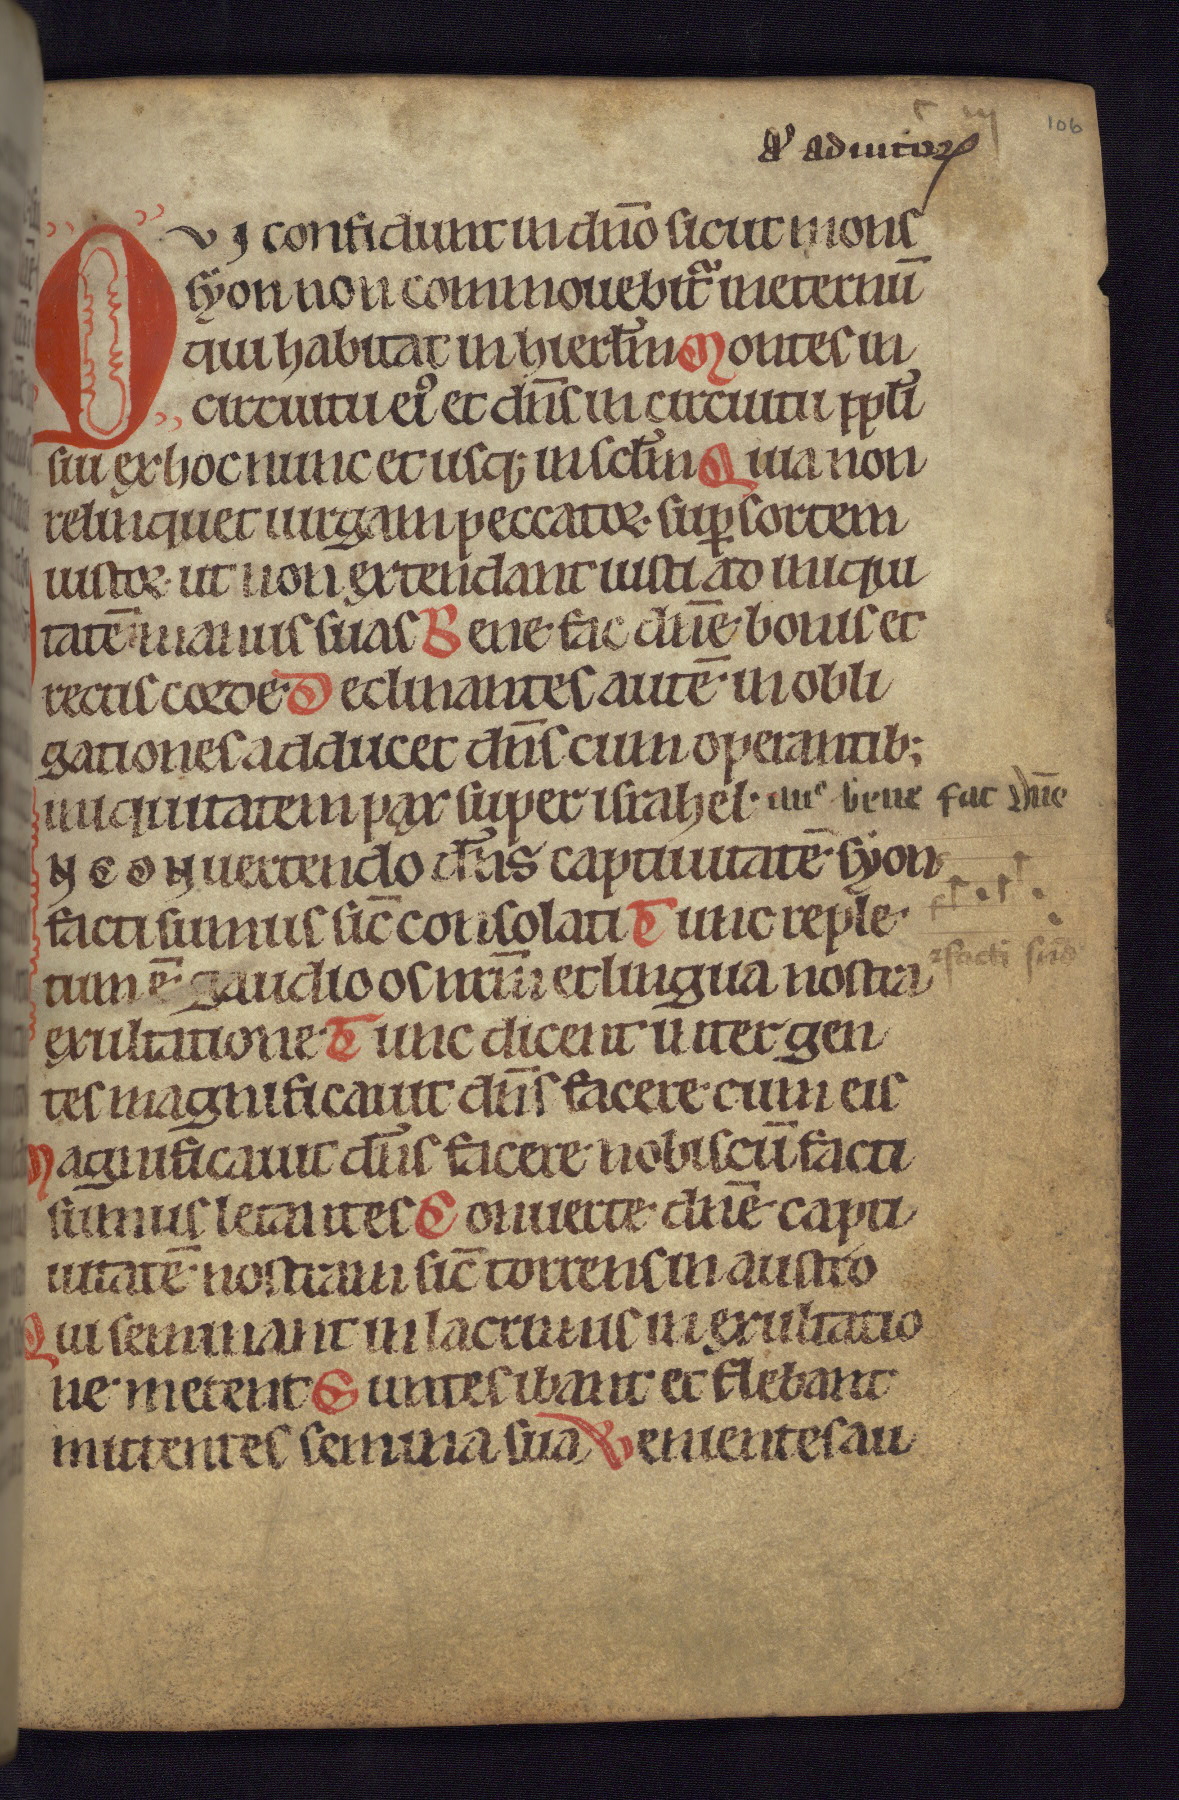 106
a᷑ adiutoꝝ
QVI confidunt in dn̄o sicut mons
syon non commouebit᷑ in eternū
qui habitat in hierl̄m Montes in
circuitu eiꝰ et dn̄s in circuitu ppl̄i
sui ex hoc nunc et usq; in scl̄m Quia non
relinquet uirgam peccatoꝝ· suꝑ sortem
iustoꝝ· ut non extendant iusti ad iniqui
tatē· manus suas Bene fac dn̄e bonis et
rectis corde· Declinantes autē· in obli
gationes adducet dn̄s cum operantib;
iniquitatem pax super israhel· an᷑ bene fac dn̄e
N CONuertendo dn̄s captiuitatē· syon
facti sumus sic̄ consolati Tunc reple·
tum ē· gaudio os nr̄m et lingua nostra
facti sum᷒
exultatione· Tunc dicent inter gen
tes magnificauit dn̄s facere· cum eis
Magnificauit dn̄s facere· nobiscū facti
sumus letantes Conuerte· dn̄e· capti
uitatē· nostram sic̄ torrens in austro
Qui seminant in lacrimis in exultatio
ne· metent Euntes ibant et flebant
mittentes semina sua Uenientes au